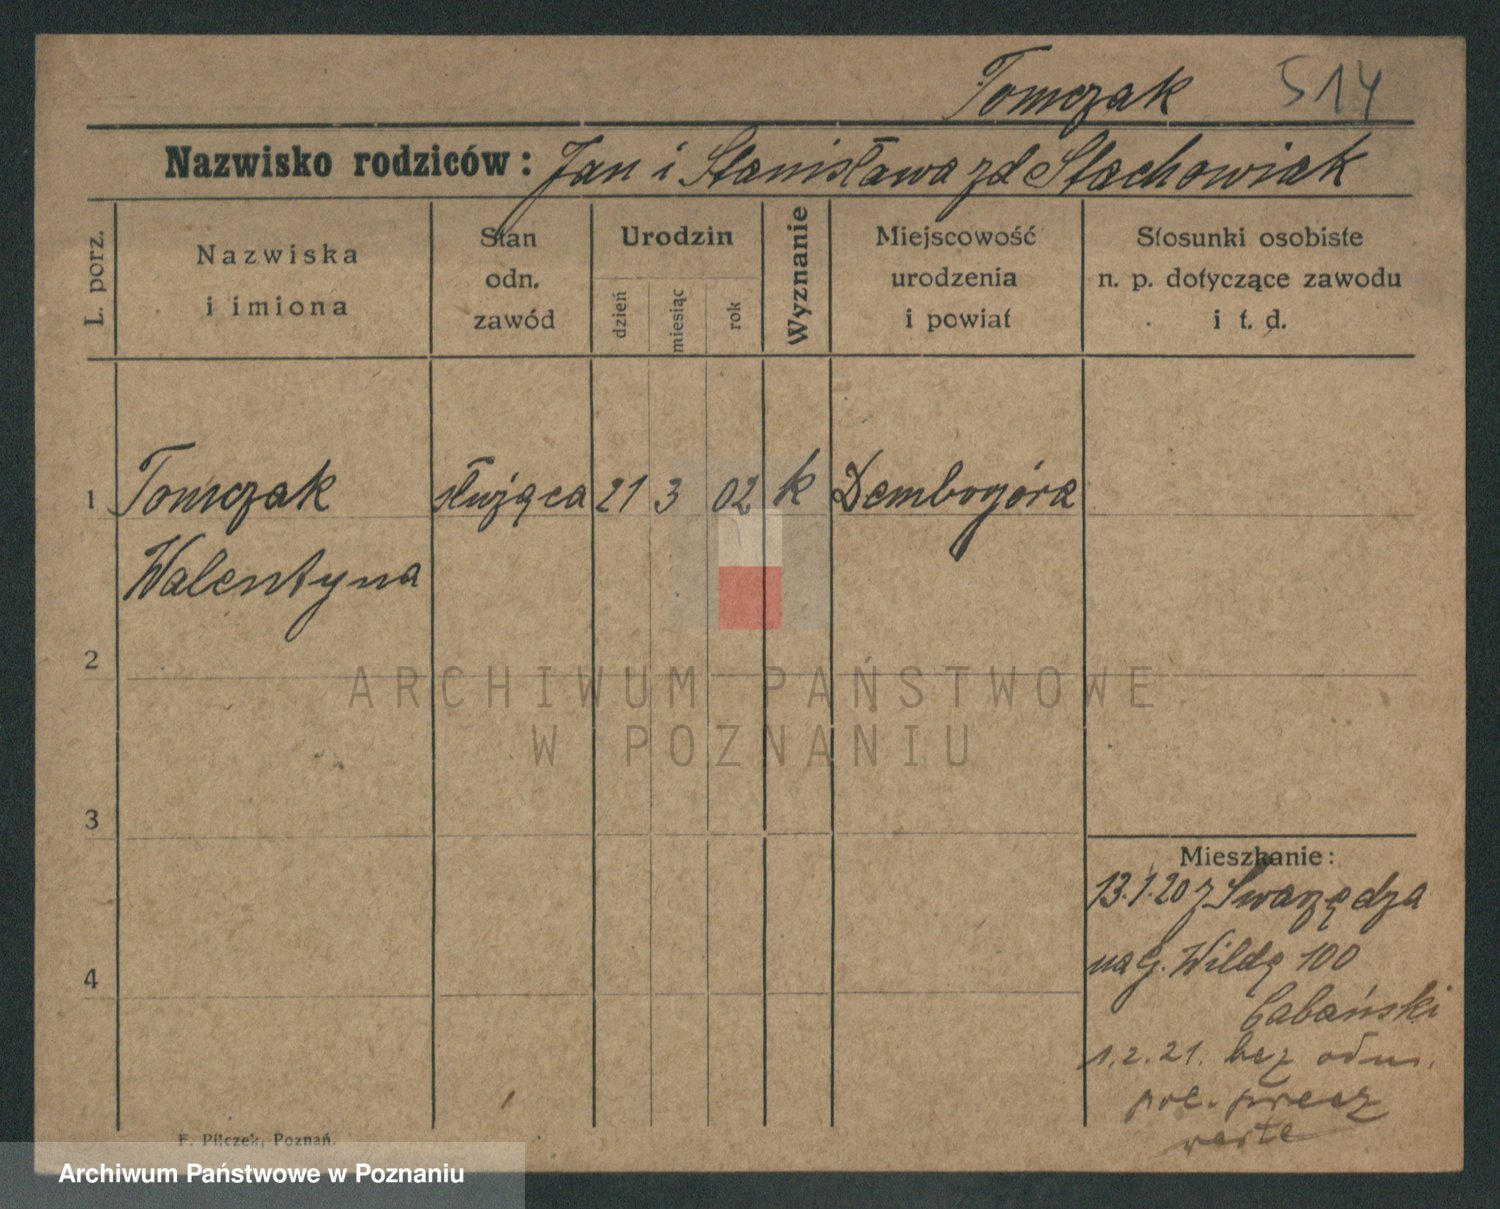 Tomczak 514
Nazwisko rodziców: Jan i Stanisława zd Stachowiak
L. porz.
Nazwiska
i imiona
Stan
odn.
zawód
Urodzin
dzień
miesiąc
rok
Wyznanie
Miejscowość
urodzenia
i powiat
Stosunki osobiste
n. p. dotyczące zawodu
i t. d.
1 Tomczak służąca 21 3 02 k Dembogóra
Walentyna
2
ARCHIWUM PAŃSTWOWE
W POZNANIU
3
4
Mieszkanie:
13.1.20 z Swarzędza
na G. Wildę 100
Cabański
1.2.21. bez odm.
pot. precz
F. Pilczek, Poznań.
Archiwum Państwowe w Poznaniu